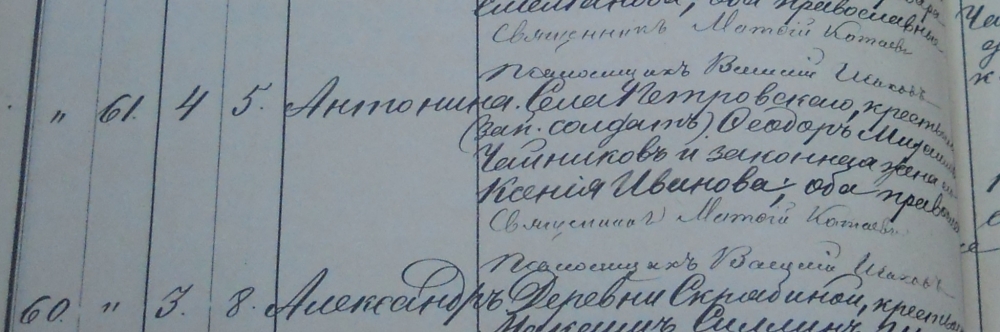 оба православные
Священникъ Матѳій Котаевъ
Псаломщикъ Василій
„ 61. 4 5. Антонина. Села Петровскаго, крестьянинъ
(зап. солдатъ) Ѳеодоръ
Чайниковъ и законная жена его
Ксенія Иванова; оба право
Священникъ Матѳій Котаевъ
Псаломщикъ Василій
60. „ 3. 8. Александръ Деревни Скрябиной, крест